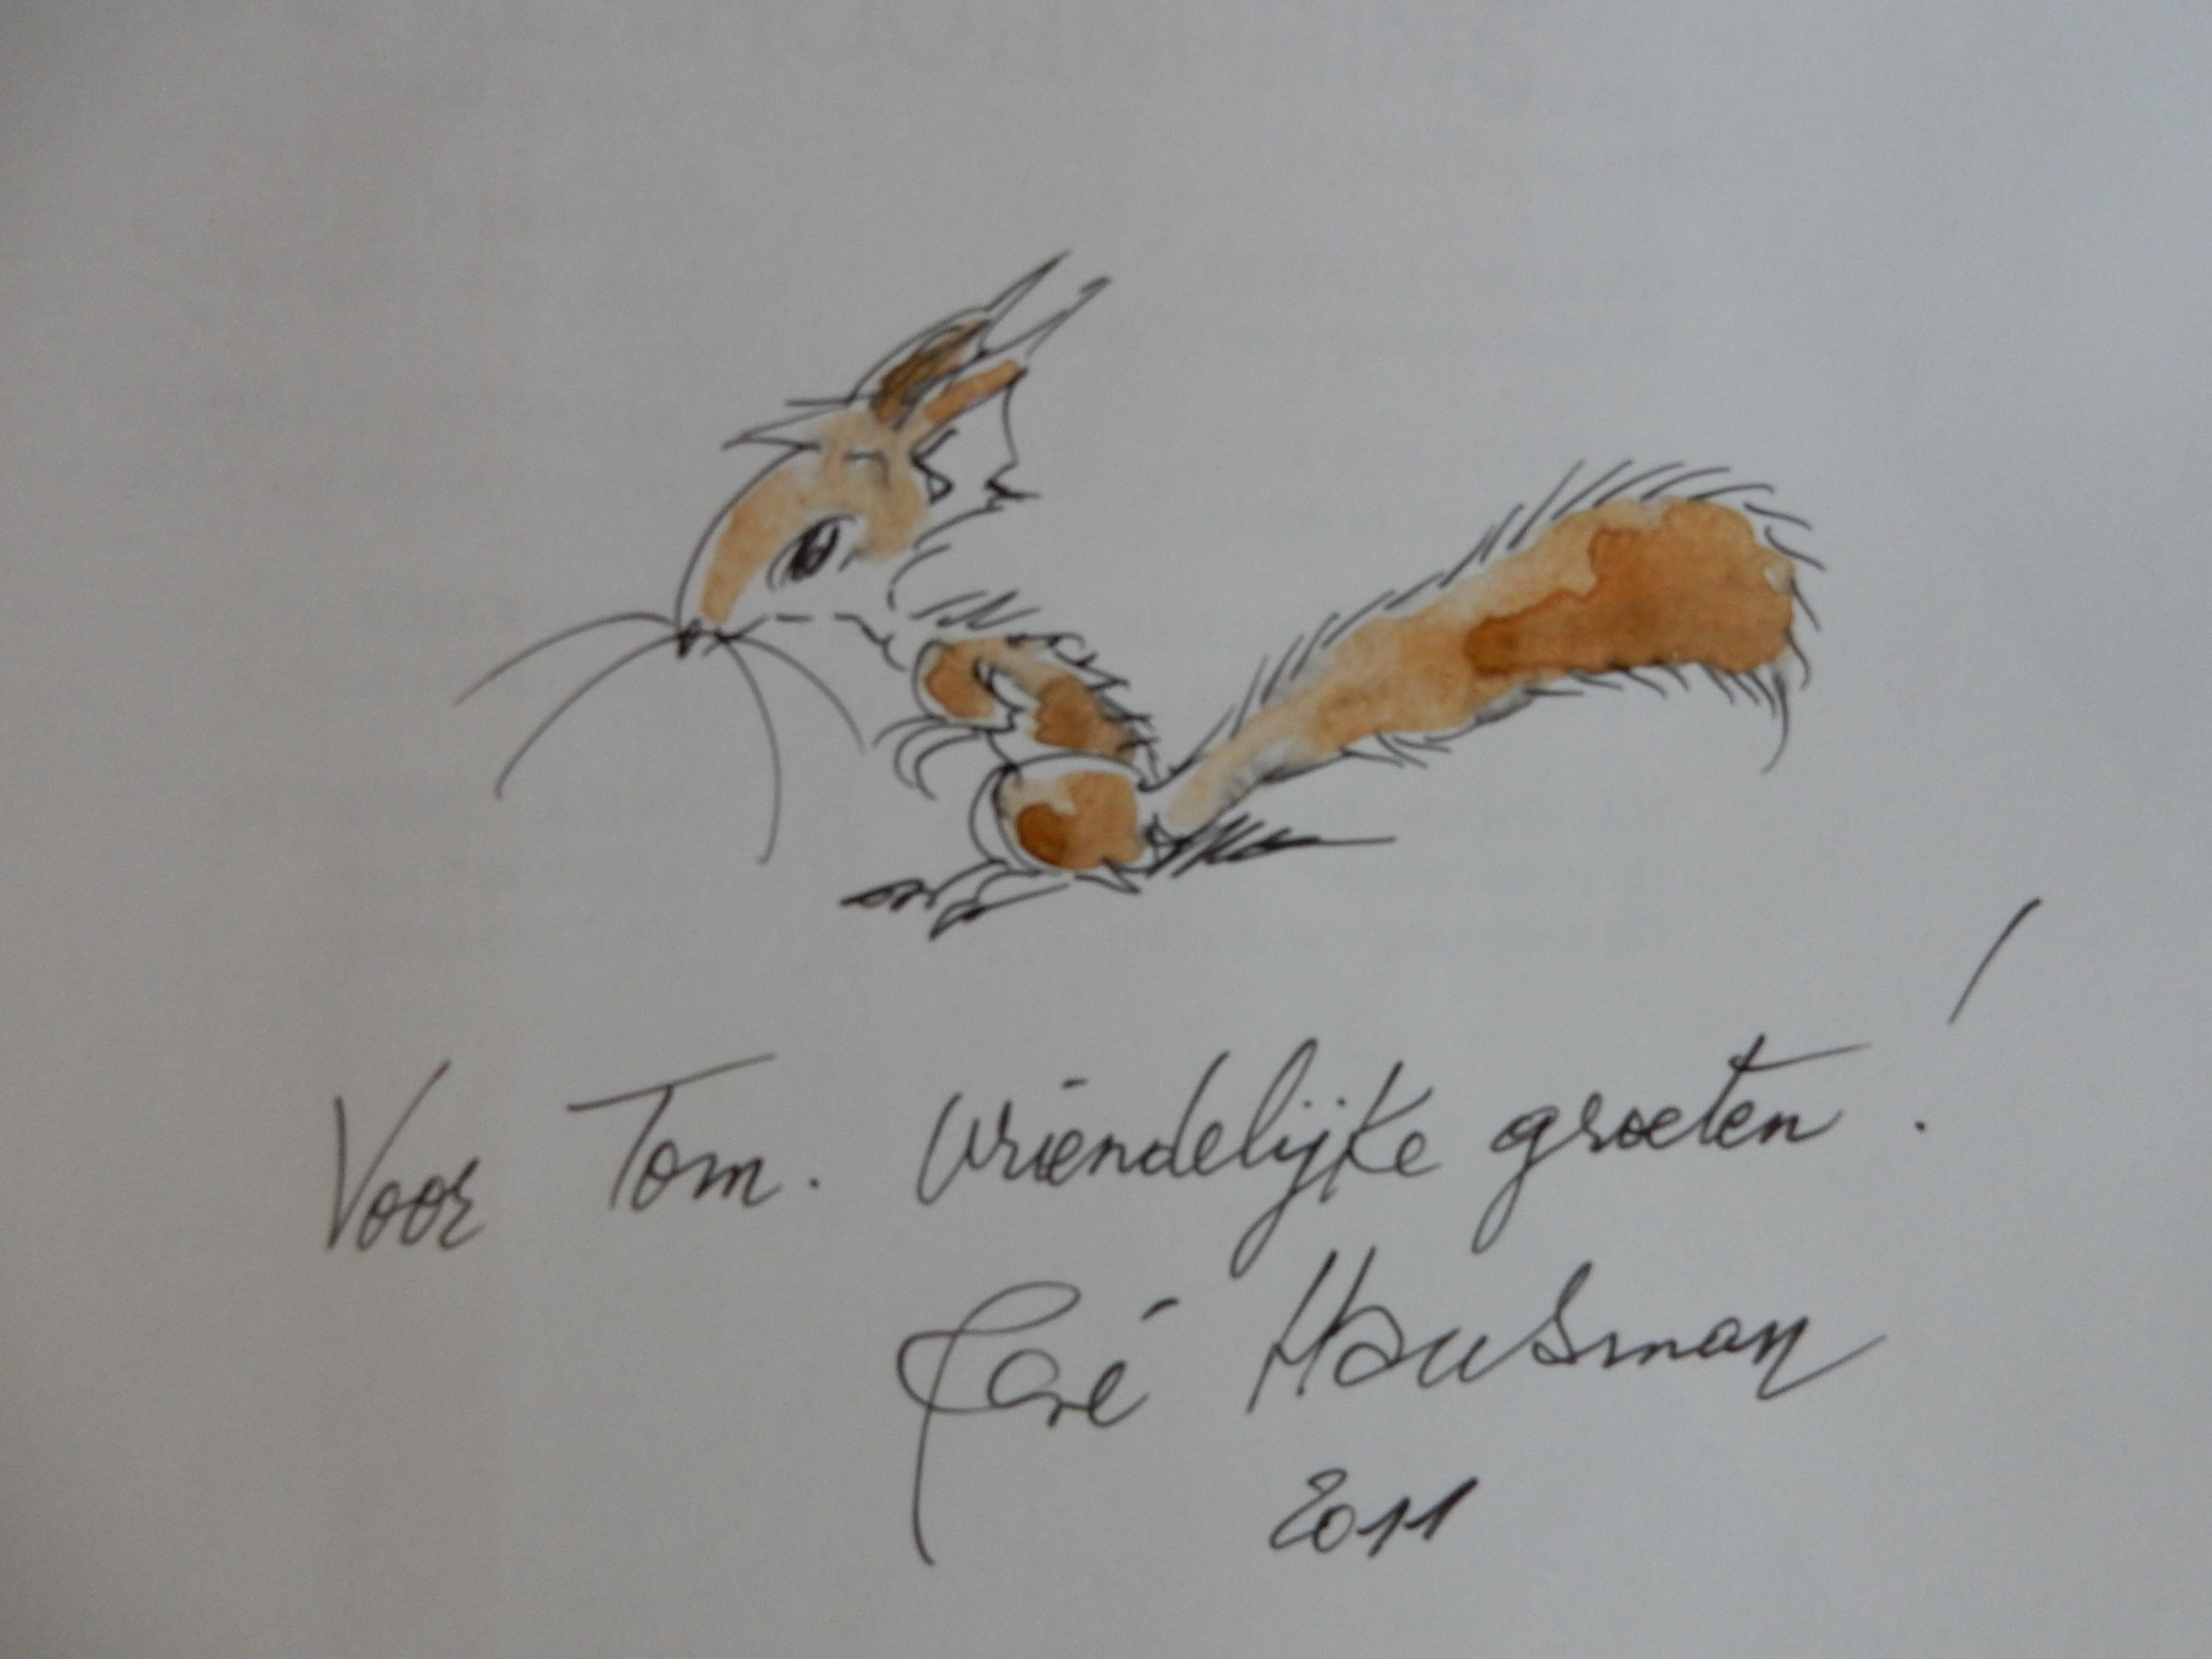 Voor Tom. Vriendelijke groeten!
René Hausman
2011